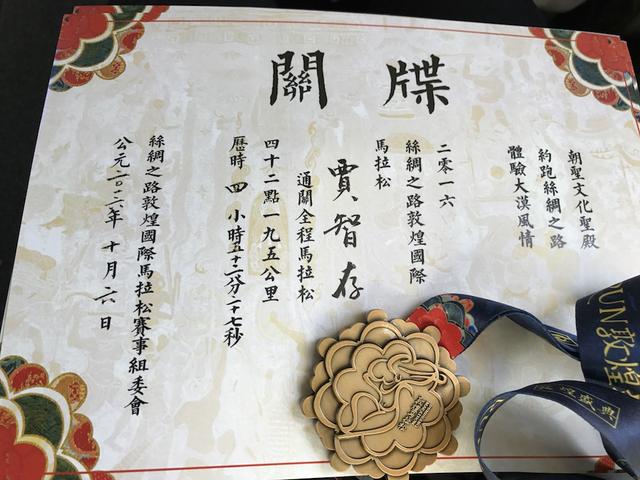 關牒
朝聖文化聖殿
約跑絲綢之路
體驗大漠風情
二零一六
絲綢之路敦煌國際
馬拉松
賈智存
通關全程馬拉松
四十二點一九五公里
歷時 四 小時五十二分二十七秒
絲綢之路敦煌國際馬拉松賽事組委會
公元二〇一六年 十月六日
UN敦煌
盛典